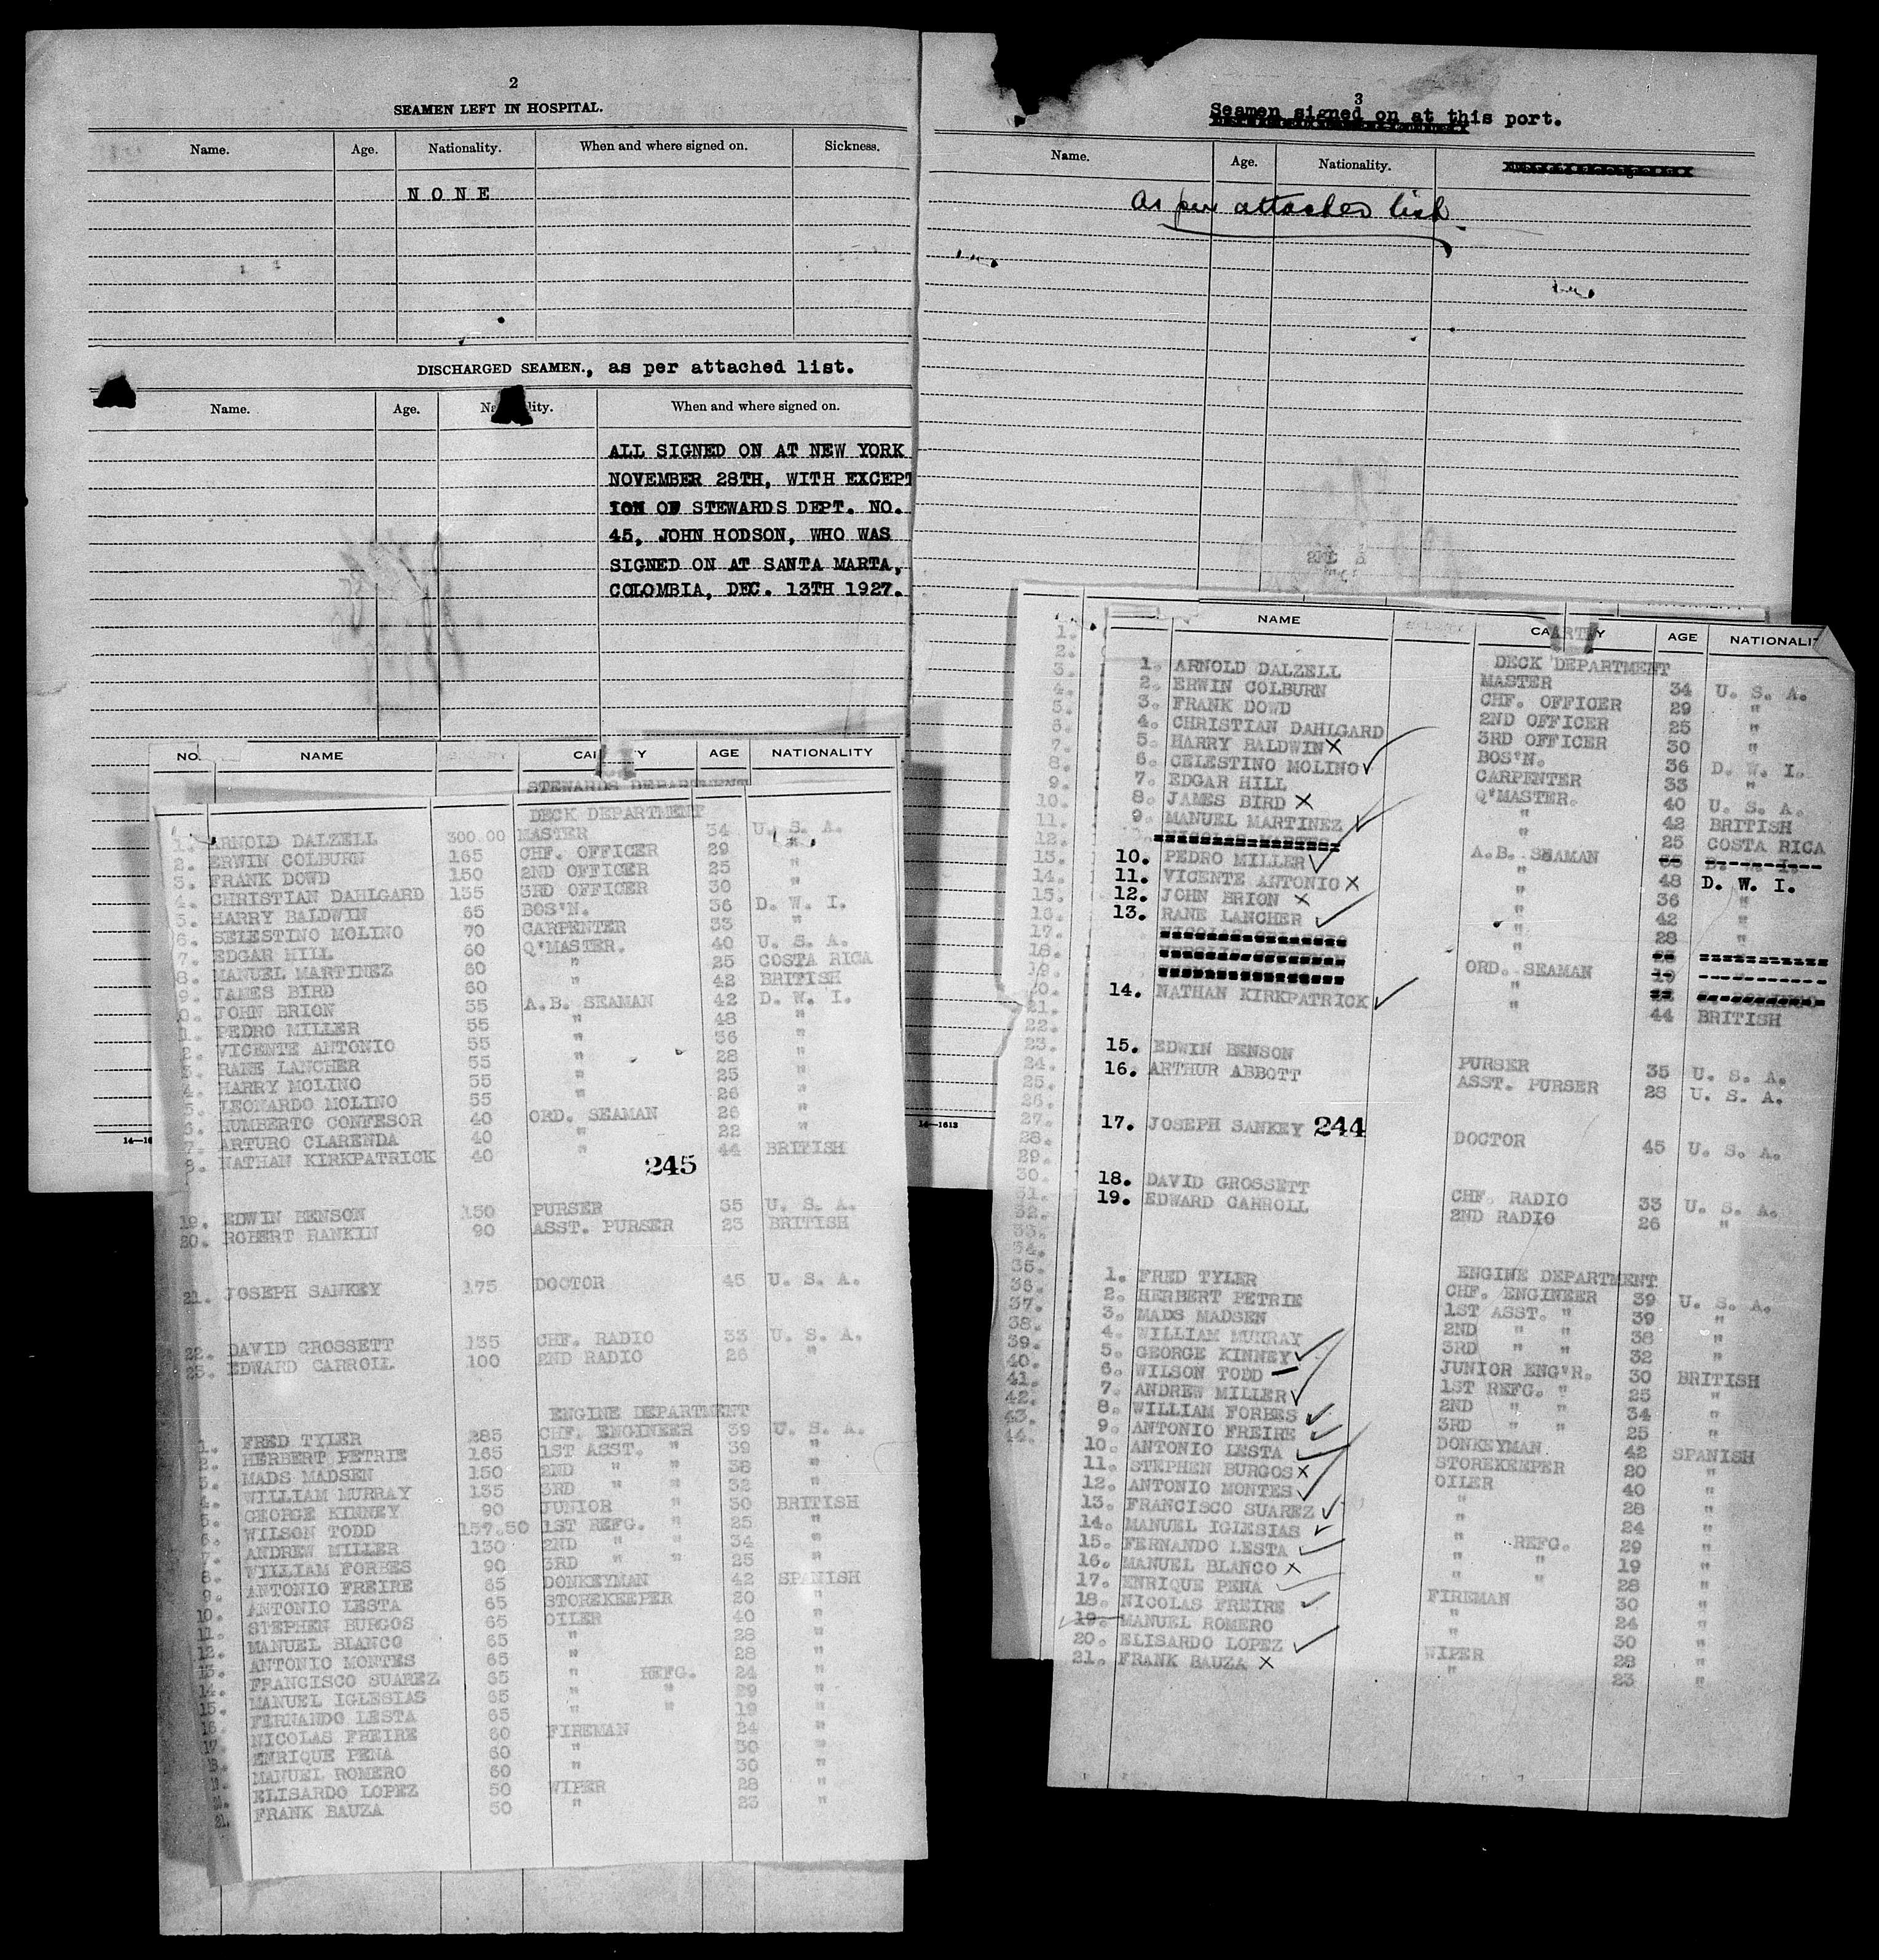 2
SEAMEN LEFT IN HOSPITAL.
Name. Age. Nationality. When and where signed on. Sickness.
NONE
DISCHARGED SEAMEN., as per attached list.
Name. Age. When and where signed on.
ALL SIGNED ON AT NEW YORK
NOVEMBER 28TH, WITH EXCEPT
ION OF STEWARDS DEPT. NO.
45, JOHN HODSON, WHO WAS
SIGNED ON AT SANTA MARTA,
COLOMBIA, DEC. 13TH 1927.
NO. NAME AGE NATIONALITY
STEWARDS DEPARTMENT
DECK DEPARTMENT
1. ARNOLD DALZELL 300.00 MASTER 34 U. S. A.
2. ERWIN COLBURN 165 CHF. OFFICER 29 "
3. FRANK DOWD 150 2ND OFFICER 25 "
4. CHRISTIAN DAHLGARD 135 3RD OFFICER 30 "
5. HARRY BALDWIN 65 BOS'N. 36 D. W. I.
6. SELESTINO MOLINO 70 CARPENTER 33 "
7. EDGAR HILL 60 Q'MASTER. 40 U. S. A.
8. MANUEL MARTINEZ 60 " 25 COSTA RICA
9. JAMES BIRD 60 " 42 BRITISH
0. JOHN BRION 55 A.B. SEAMAN 42 D. W. I.
1. PEDRO MILLER 55 " 48 "
2. VICENTE ANTONIO 55 " 36 "
3. RANE LANCHER 55 " 28 "
4. HARRY MOLINO 55 " 25 "
5. LEONARDO MOLINO 55 " 26 "
6. HUMBERTO CONFESOR 40 ORD. SEAMAN 26 "
7. ARTURO CLARENDA 40 " 22 "
8. NATHAN KIRKPATRICK 40 " 44 BRITISH
245
19. EDWIN BENSON 150 PURSER 35 U. S. A.
20. ROBERT RANKIN 90 ASST. PURSER 23 BRITISH
21. JOSEPH SANKEY 175 DOCTOR 45 U. S. A.
22. DAVID GROSSETT 135 CHF. RADIO 33 U. S. A.
23. EDWARD CARROLL 100 2ND RADIO 26 "
ENGINE DEPARTMENT
1. FRED TYLER 285 CHF. ENGINEER 39 U. S. A.
2. HERBERT PETRIE 165 1ST ASST. " 39 "
3. MADS MADSEN 150 2ND " " 38 "
4. WILLIAM MURRAY 135 3RD " " 32 "
5. GEORGE KINNEY 90 JUNIOR " 30 BRITISH
6. WILSON TODD 157.50 1ST REFG. " 25 "
7. ANDREW MILLER 130 2ND " " 34 "
8. WILLIAM FORBES 90 3RD " " 25 "
9. ANTONIO FREIRE 65 DONKEYMAN 42 SPANISH
10. ANTONIO LESTA 65 STOREKEEPER 20 "
11. STEPHEN BURGOS 65 OILER 40 "
12. MANUEL BLANCO 65 " 28 "
13. ANTONIO MONTES 65 " 28 "
14. FRANCISCO SUAREZ 65 " REFG. 24 "
15. MANUEL IGLESIAS 65 " " 29 "
16. FERNANDO LESTA 65 " " 19 "
17. NICOLAS FREIRE 60 FIREMAN 24 "
18. ENRIQUE PENA 60 " 30 "
19. MANUEL ROMERO 60 " 30 "
20. ELISARDO LOPEZ 50 WIPER 28 "
21. FRANK BAUZA 50 " 23 "
3
Seamen signed on at this port.
Name. Age. Nationality.
As per attached list
14—1613
NAME AGE NATIONALIT
DECK DEPARTMENT
1. ARNOLD DALZELL MASTER 34 U. S. A.
2. ERWIN COLBURN CHF. OFFICER 29 "
3. FRANK DOWD 2ND OFFICER 25 "
4. CHRISTIAN DAHLGARD 3RD OFFICER 30 "
5. HARRY BALDWIN X BOS'N. 36 D. W. I.
6. CELESTINO MOLINO ✓ CARPENTER 33 "
7. EDGAR HILL Q'MASTER. 40 U. S. A.
8. JAMES BIRD X " 42 BRITISH
9. MANUEL MARTINEZ ✓ " 25 COSTA RICA
10. PEDRO MILLER ✓ " 48 D. W. I.
11. VICENTE ANTONIO X " 36 "
12. JOHN BRION X " 42 "
13. RANE LANCHER ✓ " 28 "
A.B. SEAMAN
ORD. SEAMAN
14. NATHAN KIRKPATRICK ✓ " 44 BRITISH
15. EDWIN BENSON PURSER 35 U. S. A.
16. ARTHUR ABBOTT ASST. PURSER 28 U. S. A.
17. JOSEPH SANKEY 244 DOCTOR 45 U. S. A.
18. DAVID GROSSETT CHF. RADIO 33 U. S. A.
19. EDWARD CARROLL 2ND RADIO 26 "
ENGINE DEPARTMENT
1. FRED TYLER CHF. ENGINEER 39 U. S. A.
2. HERBERT PETRIE 1ST ASST. " 39 "
3. MADS MADSEN 2ND " " 38 "
4. WILLIAM MURRAY 3RD " " 32 "
5. GEORGE KINNEY ✓ JUNIOR ENG'R. 30 BRITISH
6. WILSON TODD 1ST REFG. " 25 "
7. ANDREW MILLER ✓ 2ND " " 34 "
8. WILLIAM FORBES ✓ 3RD " " 25 "
9. ANTONIO FREIRE ✓ DONKEYMAN 42 SPANISH
10. ANTONIO LESTA ✓ STOREKEEPER 20 "
11. STEPHEN BURGOS X OILER 40 "
12. ANTONIO MONTES ✓ " 28 "
13. FRANCISCO SUAREZ ✓ " REFG. 24 "
14. MANUEL IGLESIAS ✓ " " 29 "
15. FERNANDO LESTA ✓ " " 19 "
16. MANUEL BLANCO X " 28 "
17. ENRIQUE PENA ✓ FIREMAN 30 "
18. NICOLAS FREIRE ✓ " 24 "
19. MANUEL ROMERO " 30 "
20. ELISARDO LOPEZ ✓ WIPER 28 "
21. FRANK BAUZA X " 23 "